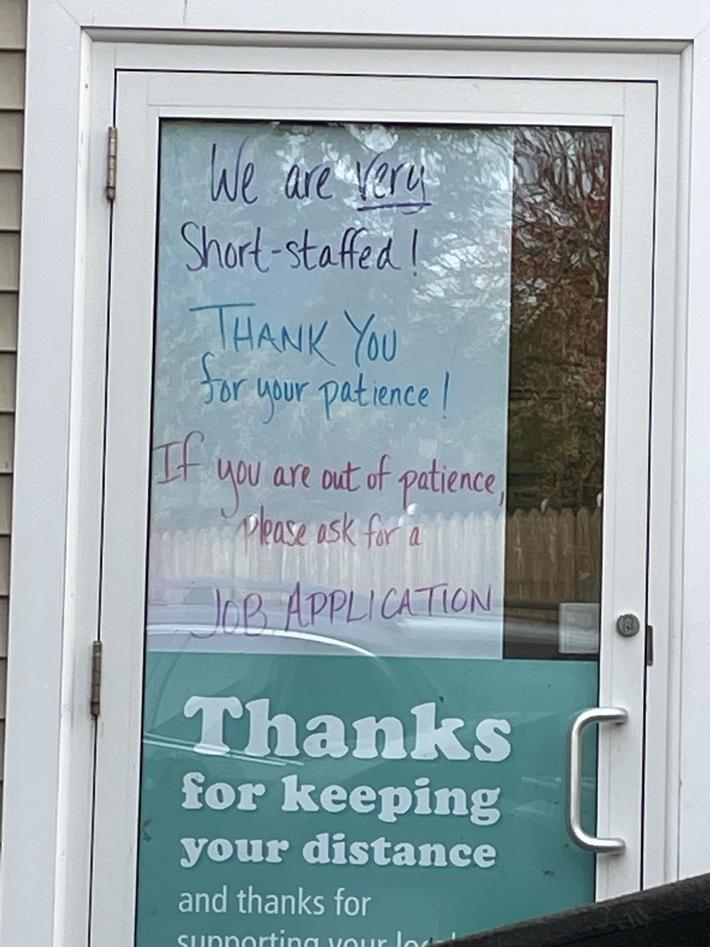 We are very
Short-staffed!
THANK YOU
for your patience!
If you are out of patience,
Please ask for a
JOB APPLICATION
Thanks
for keeping
your distance
and thanks for
supporting your